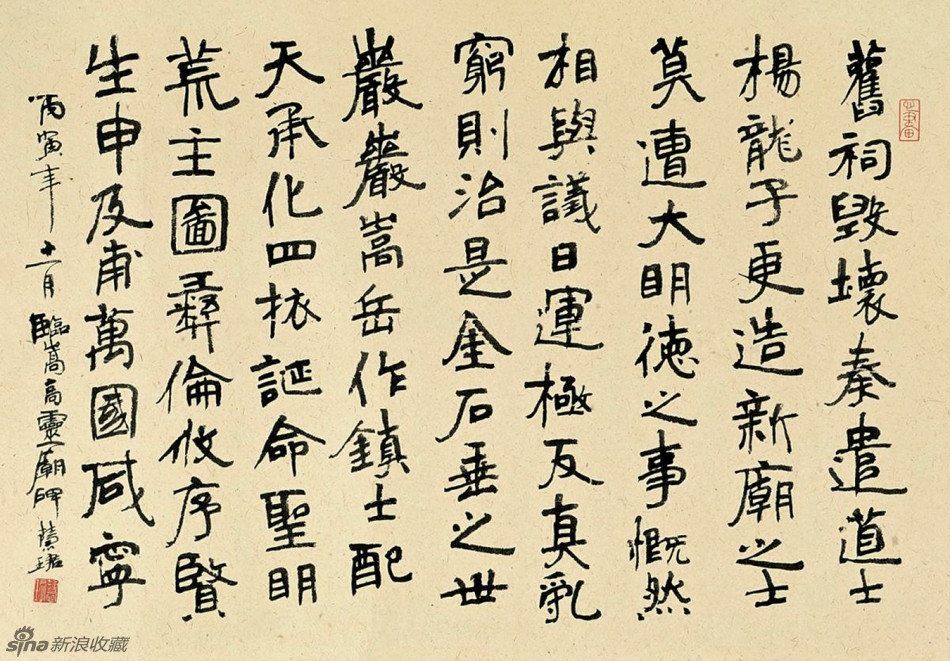 舊祠毀壞奏遣道士
楊龍子更造新廟之士
莫遭大明德之事慨然
相與議曰運極反真乱
窮則治是金石垂之世
巖巖嵩岳作鎮士配
天承化四抹誕命聖明
荒主圖彝倫攸序賢
生申及甫萬國咸寧
丙寅年十一月臨嵩高靈廟碑
sina新浪收藏